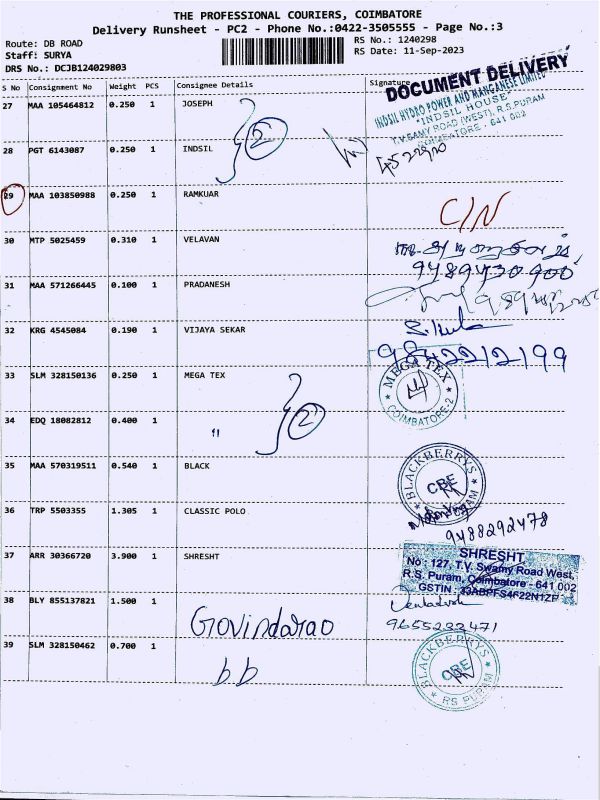 THE PROFESSIONAL COURIERS, COIMBATORE
Delivery Runsheet - PC2 - Phone No.:0422-3505555 - Page No.:3
Route: DB ROAD
Staff: SURYA
DRS No.: DCJB124029803
RS No.: 1240298
RS Date: 11-Sep-2023
S No Consignment No Weight PCS Consignee Details Signature
DOCUMENT DELIVERY
INDSIL HYDRO POWER AND MANGANESE LIMITED
"INDSIL HOUSE"
T.V.SAMY ROAD (WEST), R.S.PURAM
COIMBATORE - 641 002
27 MAA 105464812 0.250 1 JOSEPH
2
28 PGT 6143087 0.250 1 INDSIL
29 MAA 103850988 0.250 1 RAMKUAR
C/N
30 MTP 5025459 0.310 1 VELAVAN
9489730900
31 MAA 571266445 0.100 1 PRADANESH
32 KRG 4545084 0.190 1 VIJAYA SEKAR
9842212199
33 SLM 328150136 0.250 1 MEGA TEX
MEGA TEX
COIMBATORE-2
34 EDQ 18082812 0.400 1 "
2
35 MAA 570319511 0.540 1 BLACK
BLACKBERRYS
CBE
RS PURAM
36 TRP 5503355 1.305 1 CLASSIC POLO
9488292478
37 ARR 30366720 3.900 1 SHRESHT
SHRESHT
No : 127, T.V. Swamy Road West,
R.S. Puram, Coimbatore - 641 002
GSTIN : 33ABPFS4622N1ZF
38 BLY 855137821 1.500 1 Govindarao
9655233471
39 SLM 328150462 0.700 1 bb
BLACKBERRYS
CBE
RS PURAM